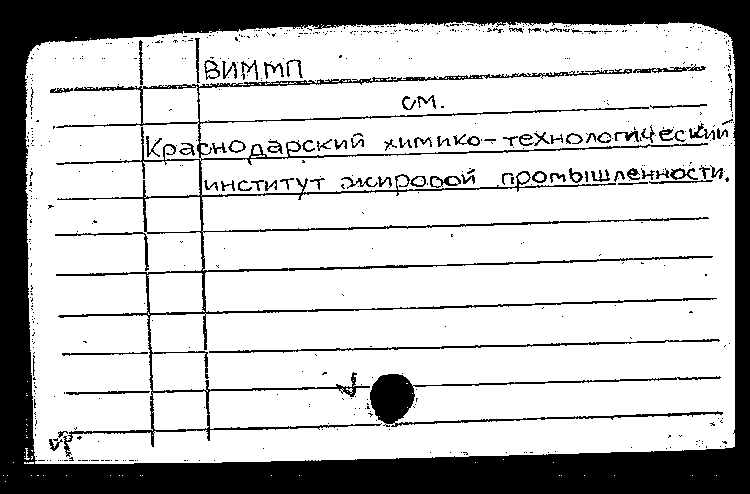 ВИММП
см.
Краснодарский химико-технологический
институт жировой промышленности.